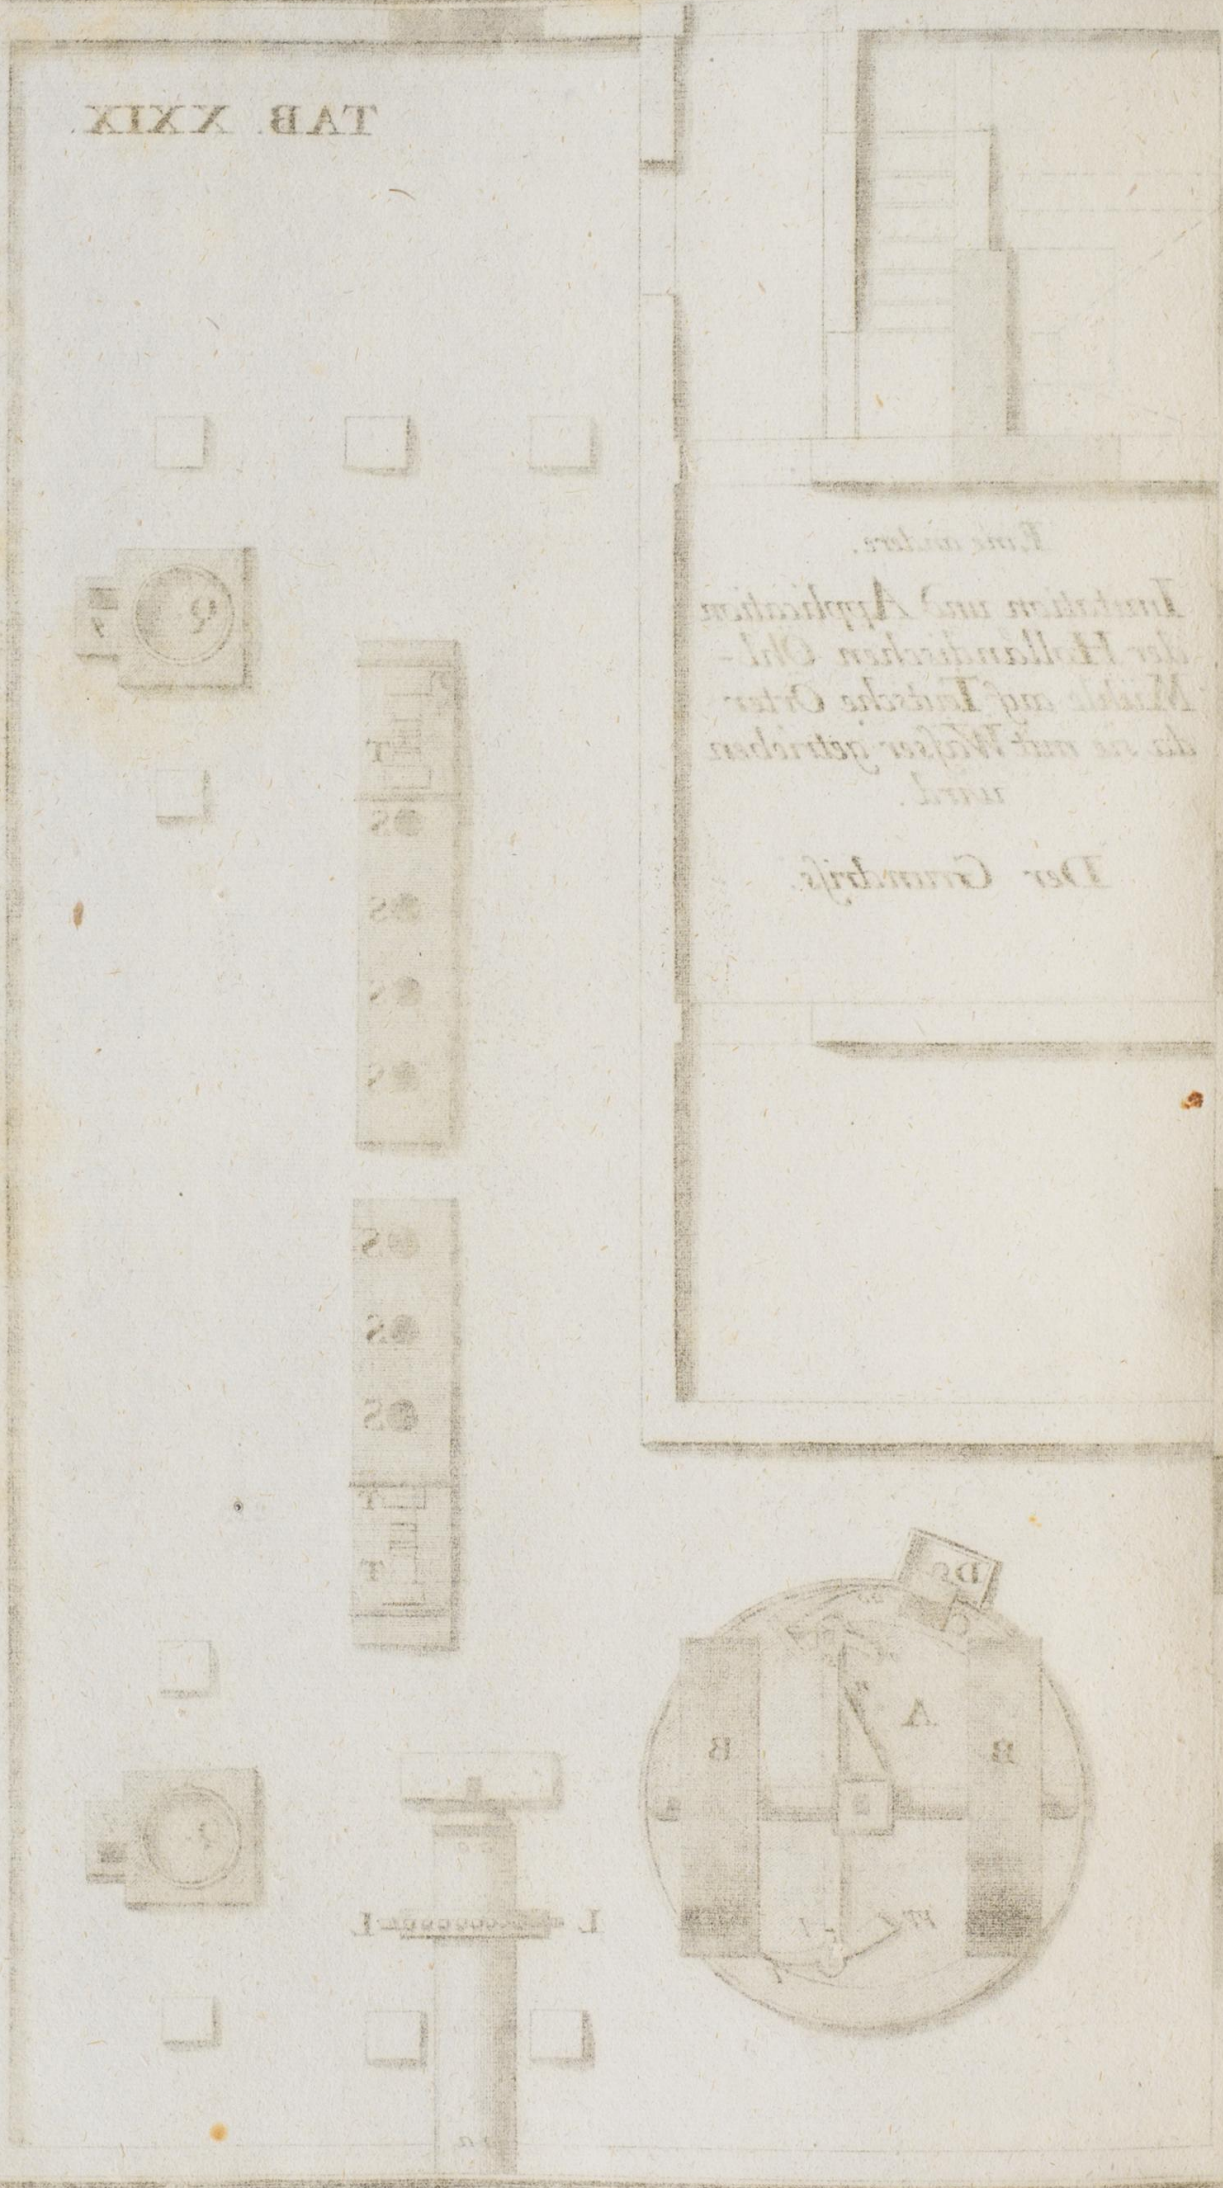 TAB. XXIX.
Eine andere.
Imitation und Application
der Holländischen Öhl-
Mühle auf Teutsche Örter
da sie mit Wasser getrieben
wird.
Der Grundriſs.
Q
T
S
S
S
S
S
S
S
T
T
D
C
A
B
B
L
L
m
n